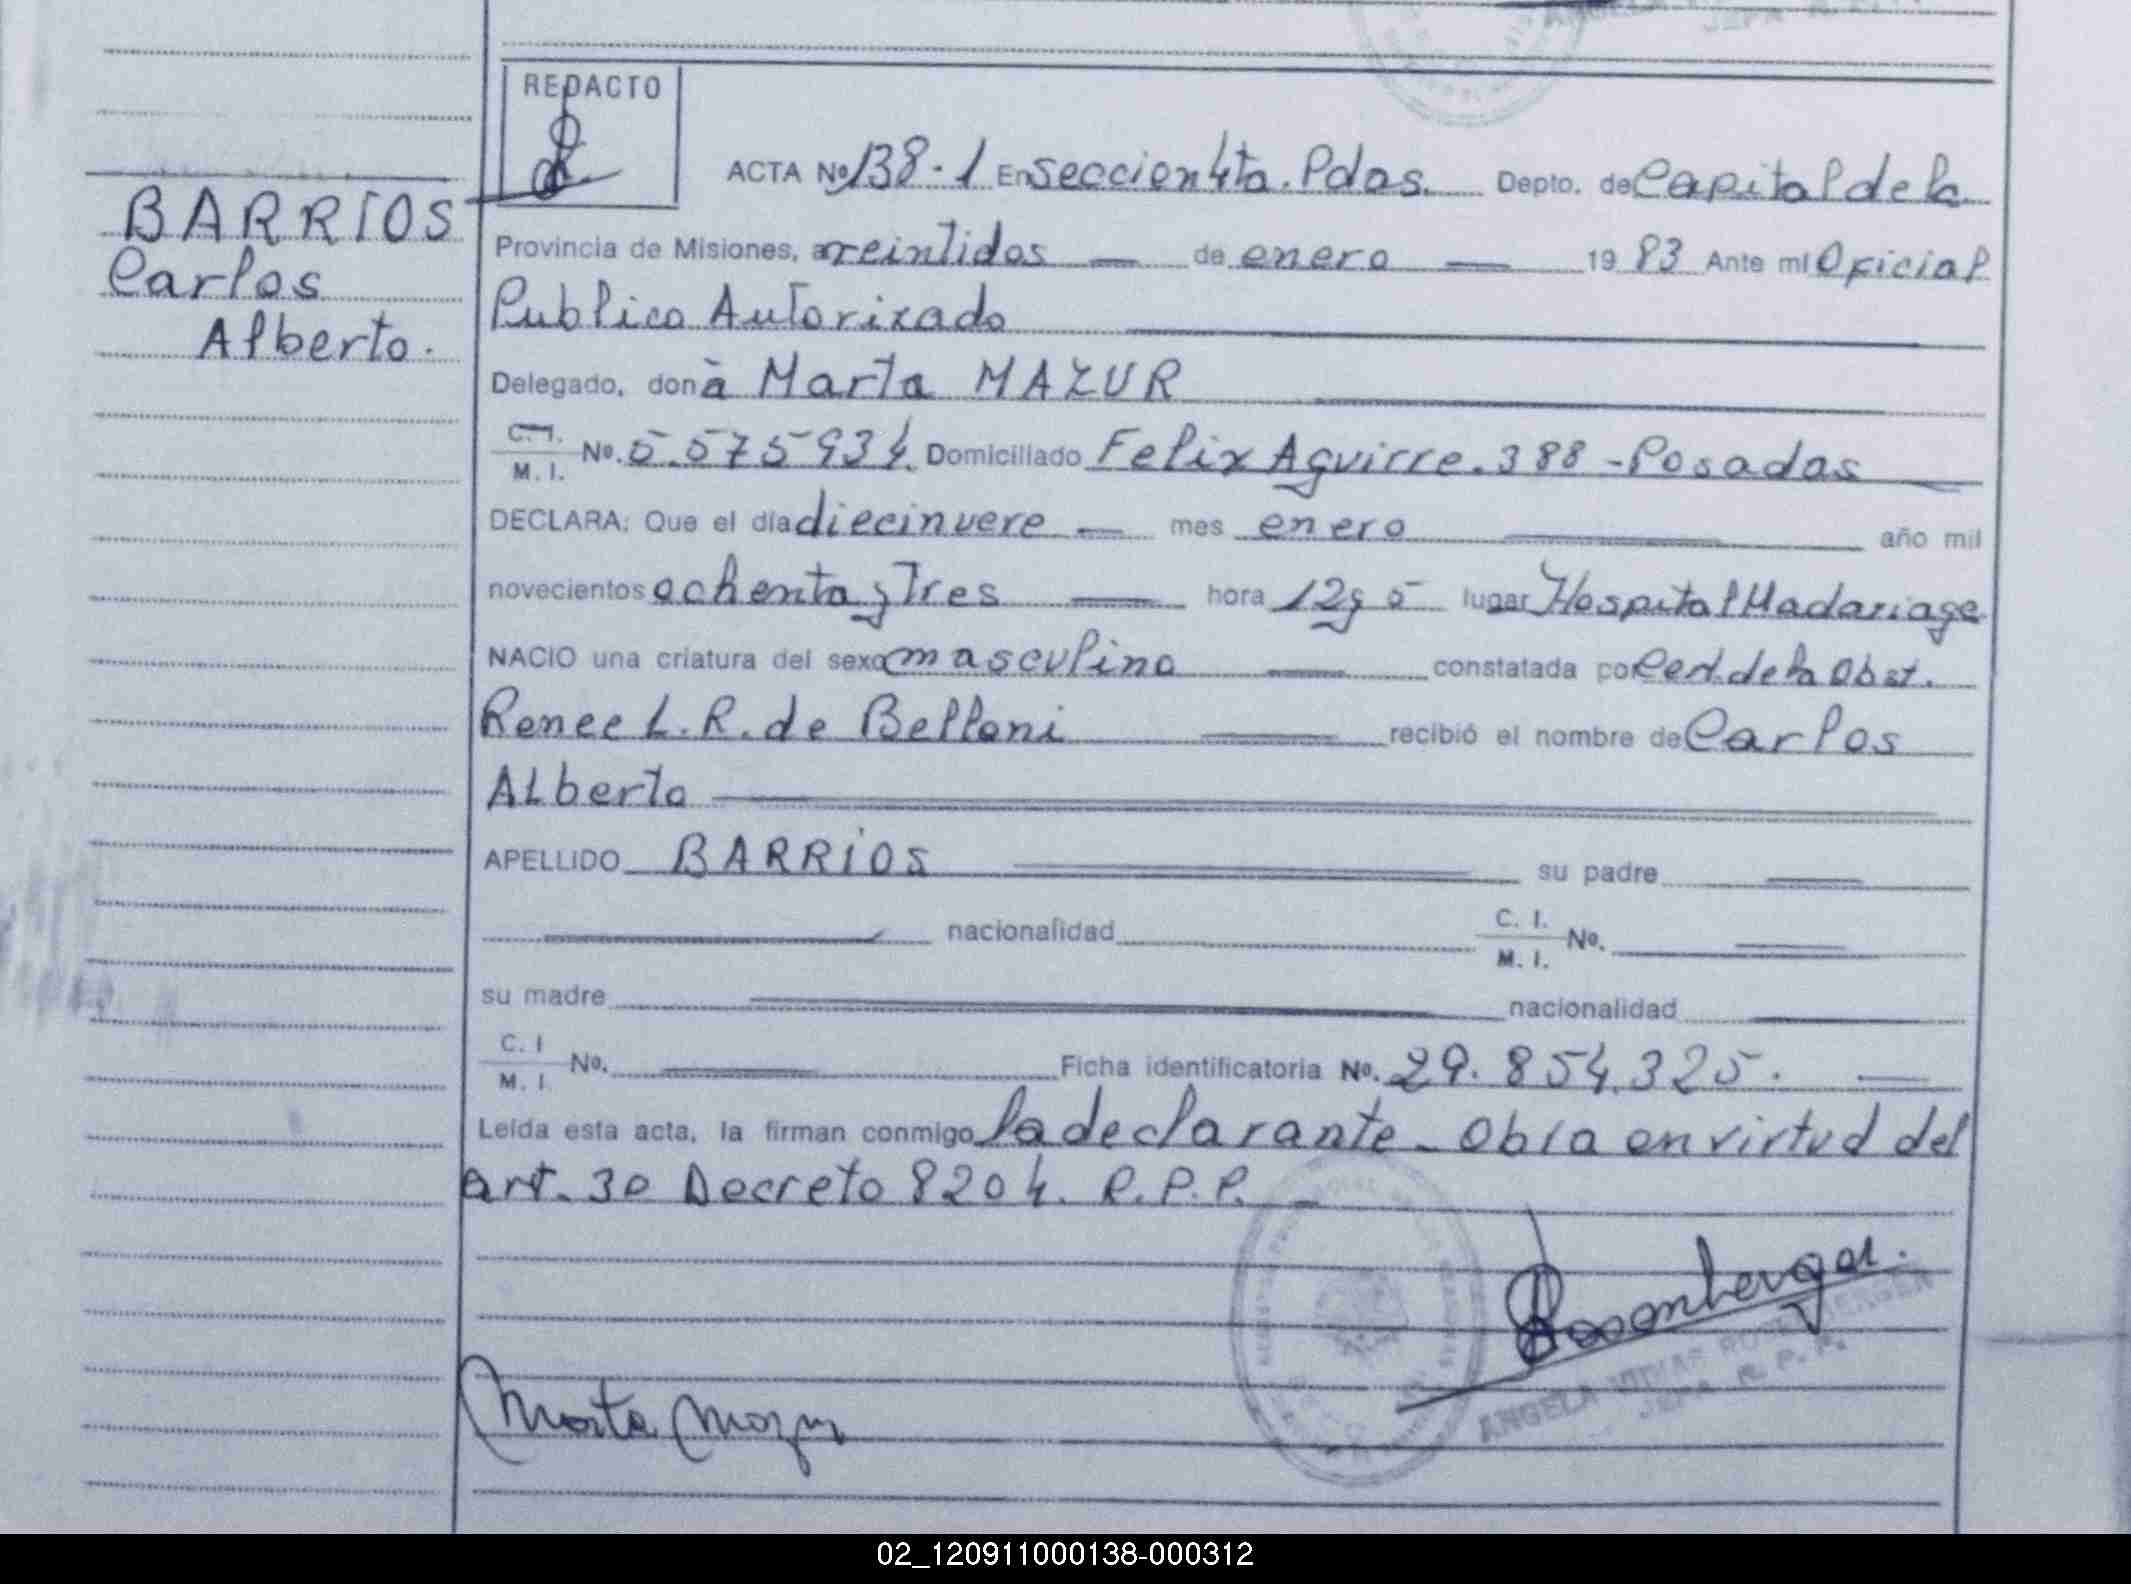 JEFA R. P. P.
REDACTO
ACTA Nº 138-1 En seccion 4ta. Pdas. Depto. de Capital de la
BARRIOS
Carlos
Alberto.
Provincia de Misiones, a veintidos de enero 19 83 Ante mi Oficial
Publico Autorizado
Delegado, don à Marta MAZUR
C. I.
M. I.
No. 5.575934. Domiciliado Felix Aguirre. 388 - Posadas
DECLARA: Que el día diecinueve mes enero año mil
novecientos ochenta y Tres hora 12 y 5 lugar Hospital Madariaga
NACIO una criatura del sexo masculino constatada por Cert. de la Obst.
Renee L. R. de Belloni recibió el nombre de Carlos
ALberto
APELLIDO BARRIOS su padre
nacionalidad C. I.
M. I. No.
su madre nacionalidad
C. I
M. I. No. Ficha identificatoria No. 29.854.325.
Leída esta acta, la firman conmigo la declarante - Obra en virtud del
art. 30 Decreto 8204. R.P.P.
Rosenberger.
ANGELA ROSENBERGER
JEFA R. P. P.
Marta Mazur
02_120911000138-000312